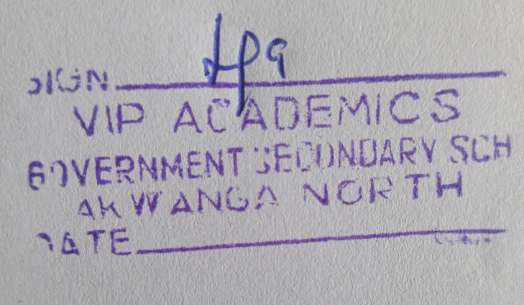 SIGN
VIP ACADEMICS
GOVERNMENT SECONDARY SCH
AKWANGA NORTH
DATE